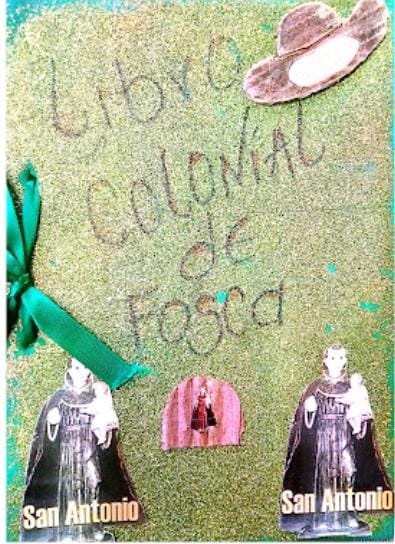 Libro
COLONiAL
de
Fosca
San Antonio
San Antonio